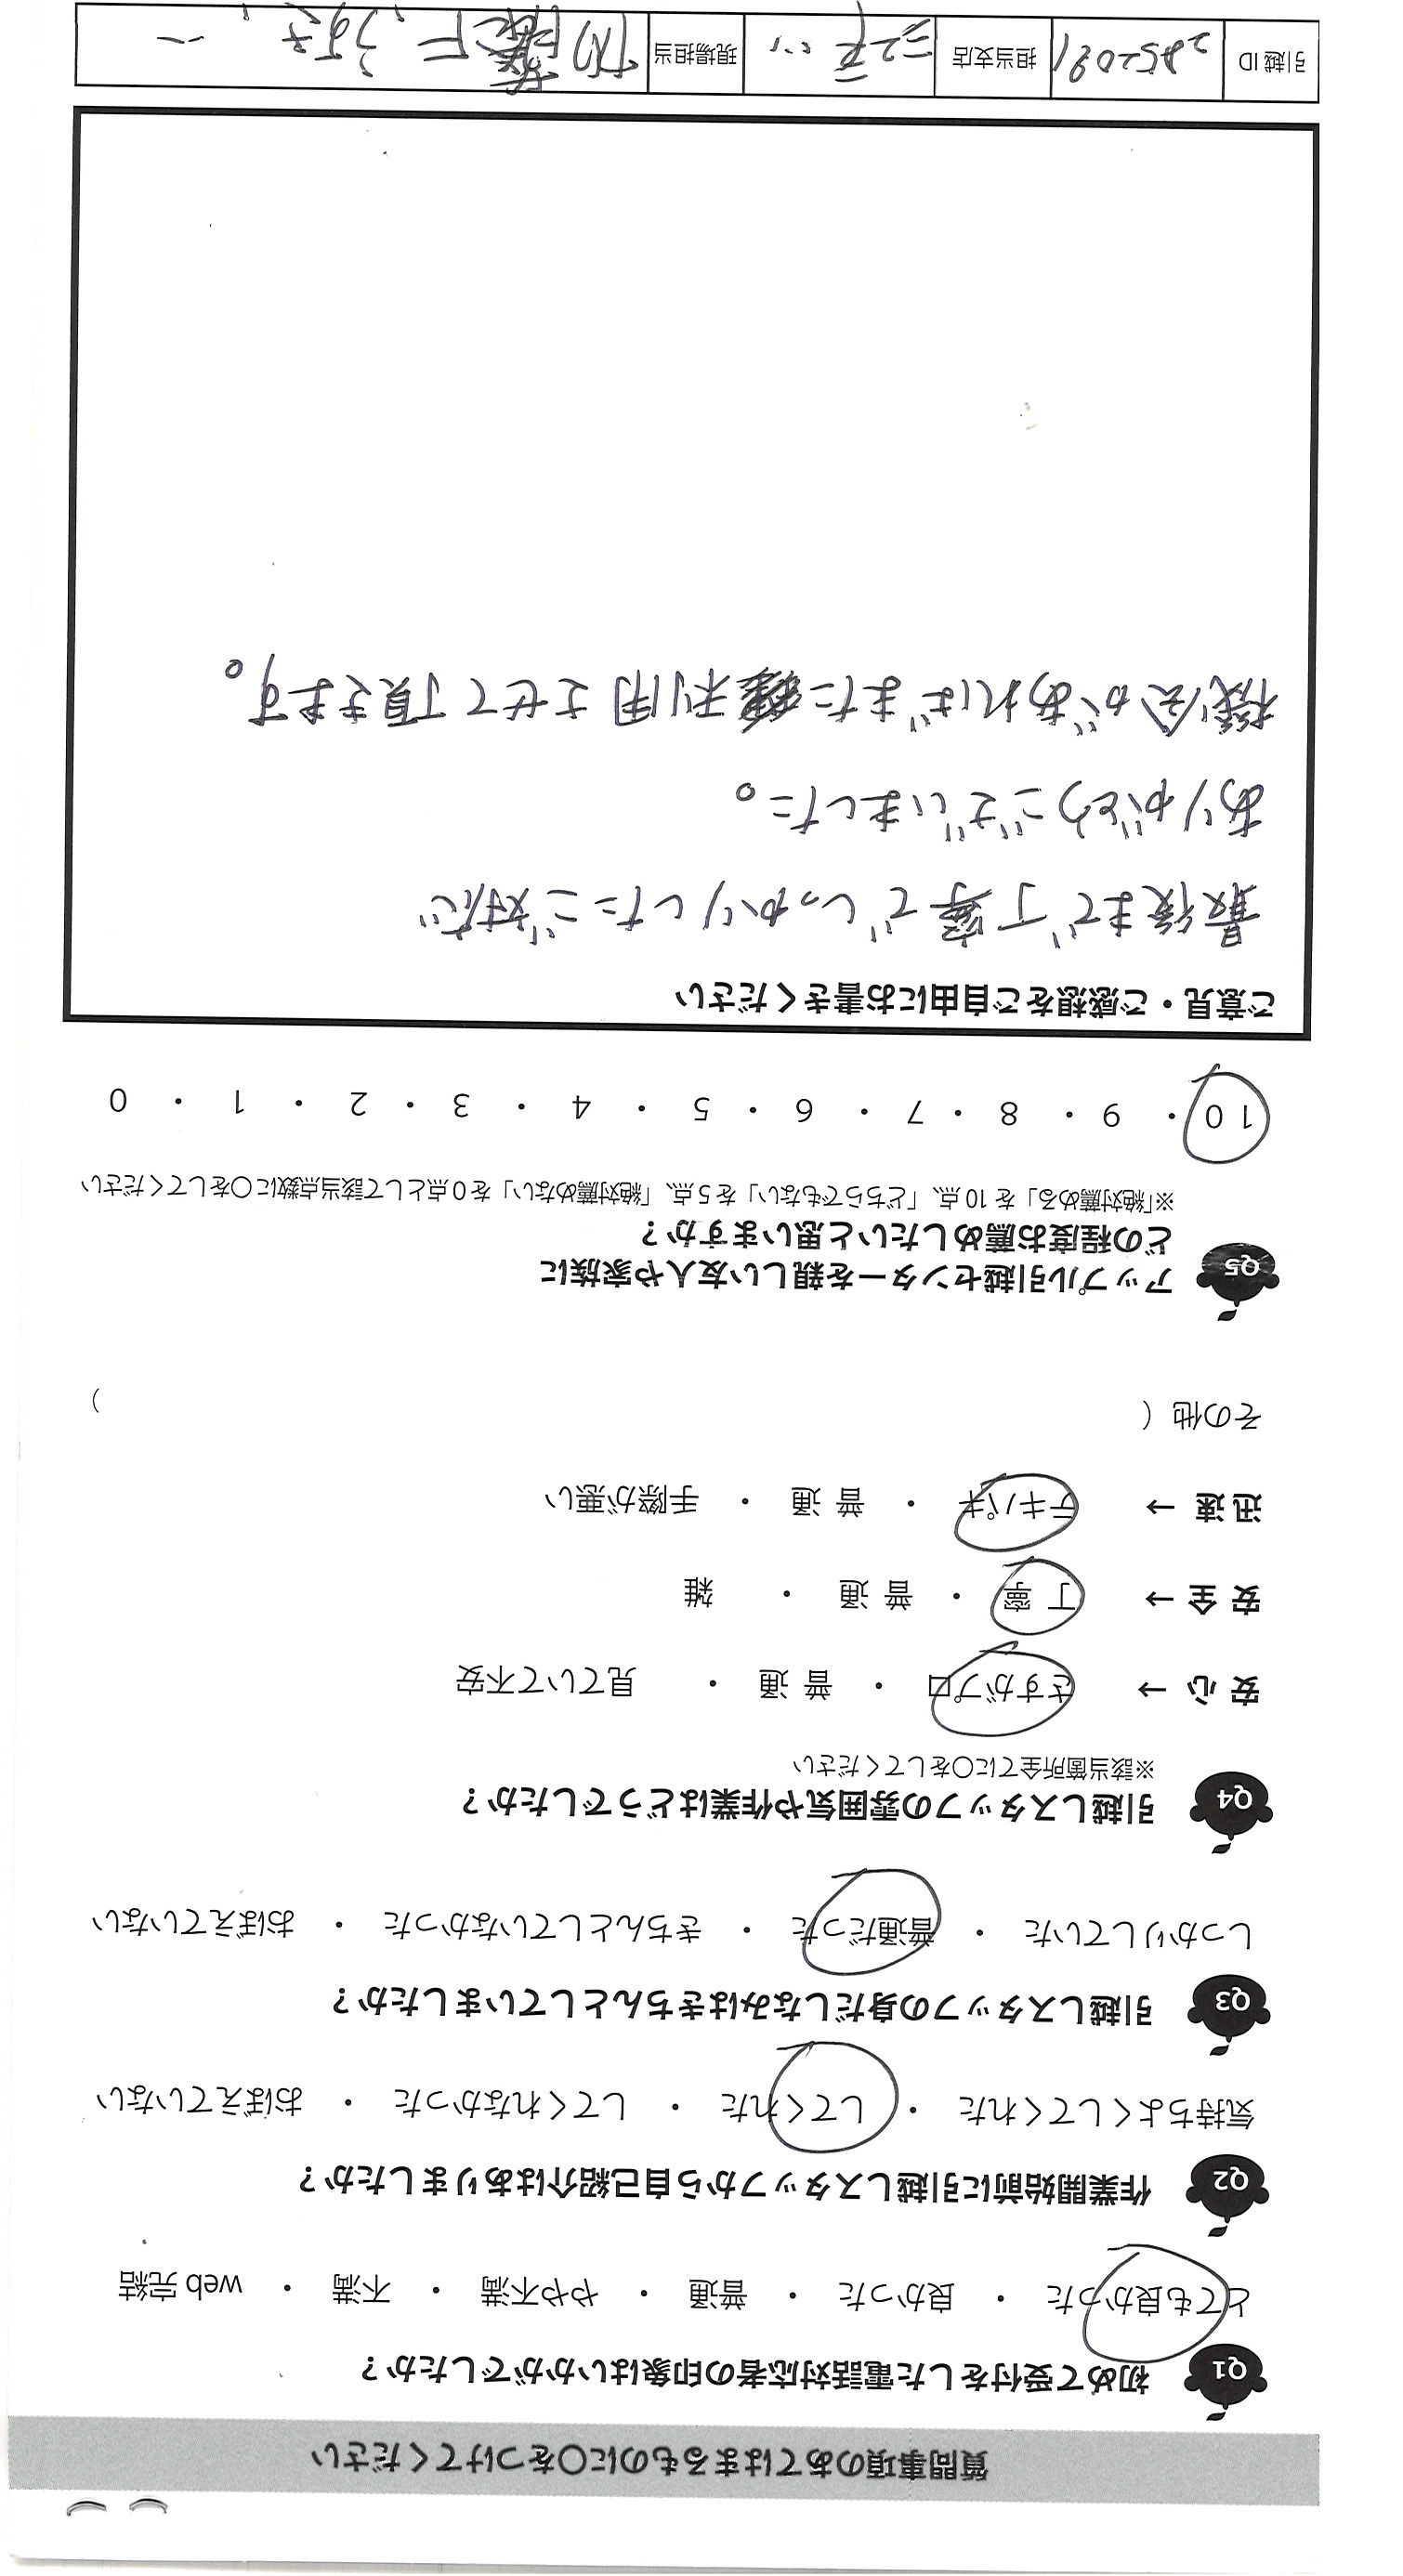 質問事項のあてはまるものに○をつけてください
Q1 初めて受付をした電話対応者の印象はいかがでしたか？
とても良かった ・ 良かった ・ 普通 ・ やや不満 ・ 不満 ・ web 完結
Q2 作業開始前に引越しスタッフから自己紹介はありましたか？
気持ちよくしてくれた ・ してくれた ・ してくれなかった ・ おぼえていない
Q3 引越しスタッフの身だしなみはきちんとしていましたか？
しっかりしていた ・ 普通だった ・ きちんとしていなかった ・ おぼえていない
Q4 引越しスタッフの雰囲気や作業はどうでしたか？
※該当箇所全てに○をしてください
安 心 → さすがプロ ・ 普 通 ・ 見ていて不安
安 全 → 丁 寧 ・ 普 通 ・ 雑
迅 速 → テキパキ ・ 普 通 ・ 手際が悪い
その他（ ）
Q5 アップル引越センターを親しい友人や家族に
どの程度お薦めしたいと思いますか？
※「絶対薦める」を 10 点、「どちらでもない」を 5 点、「絶対薦めない」を 0 点として該当点数に○をしてください
10 ・ 9 ・ 8 ・ 7 ・ 6 ・ 5 ・ 4 ・ 3 ・ 2 ・ 1 ・ 0
ご意見・ご感想をご自由にお書きください
最後まで丁寧でしっかりしたご対応
ありがとうございました。
機会があればまた利用させて頂きます。
引越 ID 担当支店 現場担当